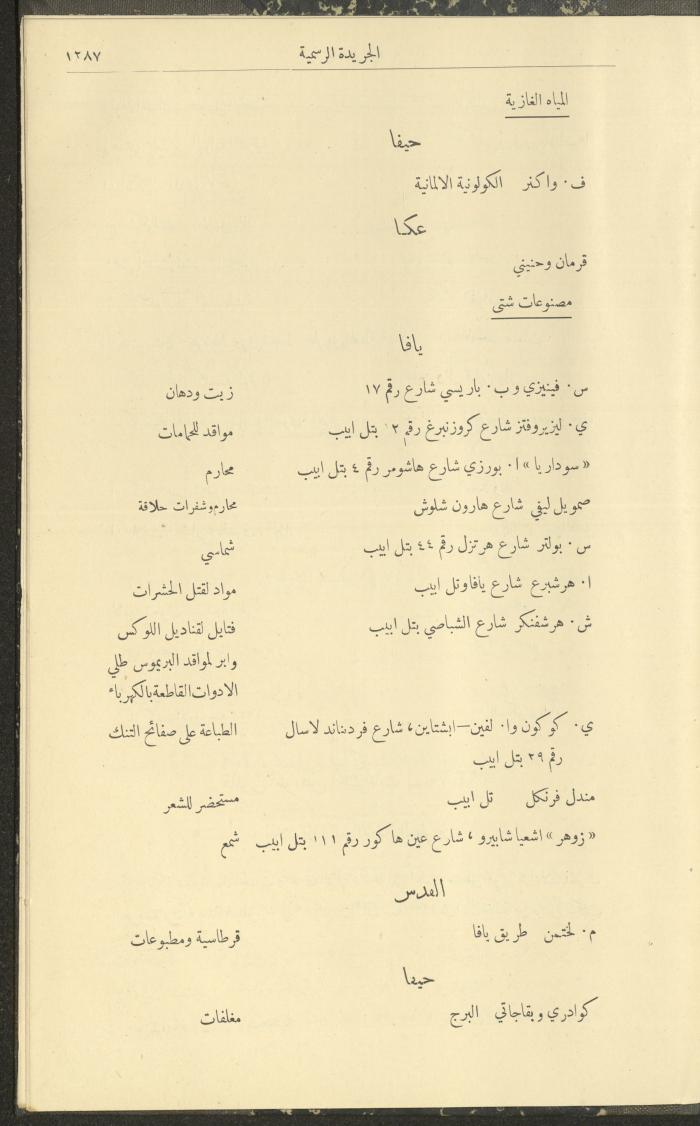 الجريدة الرسمية ١٢٨٧
المياه الغازية
حيفا
ف. واكنر الكولونية الالمانية
عكا
قرمان وحنيني
مصنوعات شتى
يافا
س. فينيزي و ب. باريسي شارع رقم ١٧ زيت ودهان
ي. ليزيروفتز شارع كروزنبرغ رقم ٢ بتل ابيب مواقد للحمامات
«سوداريا» ا. بورزي شارع هاشومر رقم ٤ بتل ابيب محارم
صمويل ليفي شارع هارون شلوش محارم وشفرات حلاقة
س. بولتر شارع هرتزل رقم ٤٤ بتل ابيب شماسي
ا. هرشبرع شارع يافا وتل ابيب مواد لقتل الحشرات
ش. هرشفنكر شارع الشباصي بتل ابيب فتايل لقناديل اللوكس
وابر لمواقد البريموس طلي
الادوات القاطعة بالكهرباء
ي. كوكون وا. لفين—ابشتاين، شارع فردناند لاسال الطباعة على صفائح التنك
رقم ٢٩ بتل ابيب
مندل فرنكل تل ابيب مستحضر للشعر
«زوهر» اشعيا شابيرو، شارع عين هاكور رقم ١١ بتل ابيب شمع
القدس
م. لختمن طريق يافا قرطاسية ومطبوعات
حيفا
كوادري وبقاجاتي البرج مغلفات